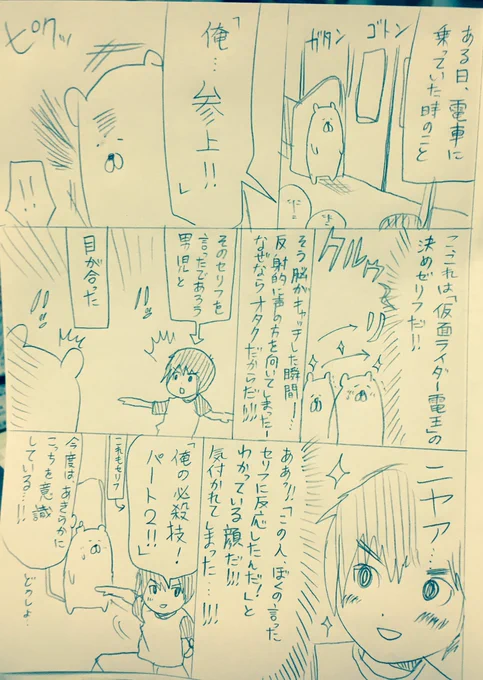 ある日、電車に
乗っていた時のこと
ガタン
ゴトン
「俺…参上!!」
ピクッ
!!
こ、これは「仮面ライダー電王」の
決めゼリフだ!!
クルゥッ
そう脳がキャッチした瞬間―…
反射的に声の方を向いてしまったー
なぜならオタクだからだ!!!!
そのセリフを
言ったであろう
男児と
目が合った
ニヤア…
ああッ!!「この人、ぼくの言った
セリフに反応したんだ!
わかっている顔だ!!!」と
気付かれてしまった…!!!
「俺の必殺技!
パート2!!」
これもセリフ
今度は、あきらかに
こっちを意識
している…!!!
どうしよ…